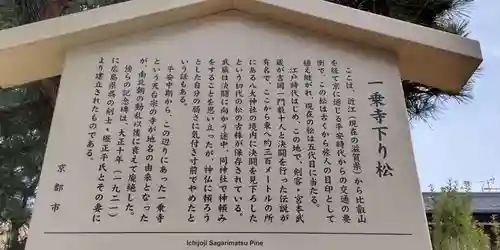 一乗寺下り松
ここは、近江（現在の滋賀県）から比叡山
を経て京に通じる平安時代からの交通の要
衝で、この松は古くから旅人の目印として
植え継がれ、現在の松は五代目に当たる。
江戸時代はじめ、この地で、剣客・宮本武
蔵が吉岡一門数十人と決闘を行った伝説が
有名で、ここから東へ約三百メートルの所
にある八大神社の境内に決闘を見下ろした
という初代の松の古株が保存されている。
武蔵は決闘に向かう途中、同神社で神頼み
をすることを思い立ったが、神仏に頼ろう
とした自分の弱さに気付き寸前でやめたと
いう話もある。
平安中期から、この辺りにあった一乗寺
という天台宗の寺が地名の由来となった
が、南北朝の動乱以後に衰えて廃絶した。
傍らの記念碑は、大正十年（一九二一）
に広島県呉の剣士・堀正平氏とその妻に
より建立されたものである。
京都市
Ichijoji Sagarimatsu Pine